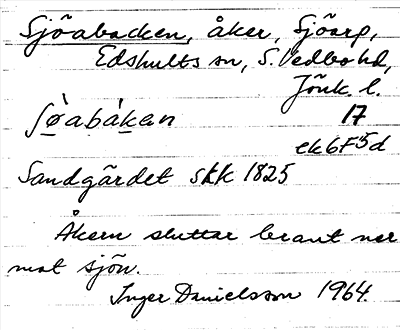 Sjöabacken, åker, Sjöarp,
Edshults sn, S. Vedbo hd,
Jönk. l.
ʃø̀abákan 17
ek6F5d
Sandgärdet skk 1825
Åkern sluttar brant ner
mot sjön.
Inger Danielsson 1964.